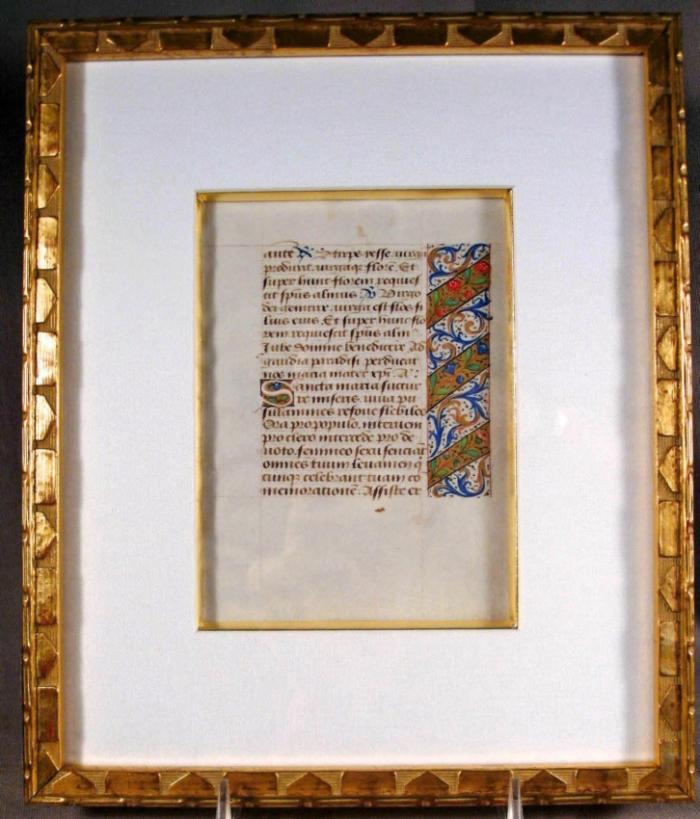 ante R Stirps yesse virga
produxit. virgaqȝ florē. Et
super hunc florem requies
cit spūs almus ℣ Virgo
dei genitrix virga est flos fi
lius eius. Et super hunc flo
rem requiescit spūs alm
Jube domine benedicere Ad
gaudia paradisi perducat
nos maria mater xpi. A:
Sancta maria succur
re miseris. iuua pu
sillanimes refoue flebiles
Ora pro populo. interueni
pro clero intercede pro de
uoto. femineo sexu senciāt
omnes tuum leuamen q̄
cunqȝ celebrant tuam cō
memorationē. Assiste